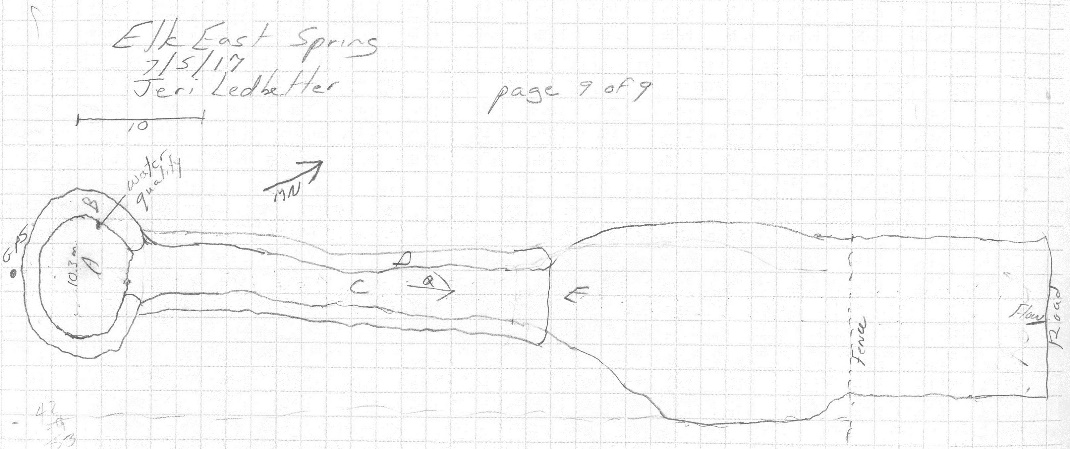 Elk East Spring
7/5/17
Jeri Ledbetter
page 9 of 9
10
MN
water
quality
B
GPS
10.3m
A
D
C
Q
E
Fence
Flow
Road